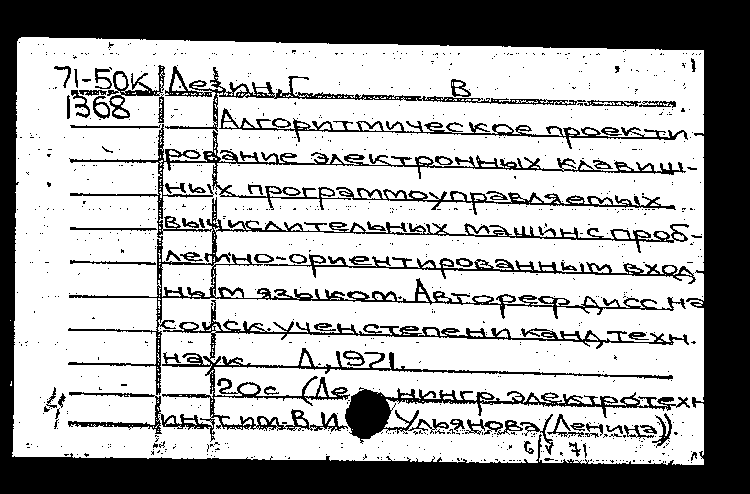 71-50к Лезин, Г В
1368
Алгоритмическое проекти-
рование электронных клавиш-
ных программоуправляемых
вычислительных машин с проб-
лемно-ориентированным вход-
ным языком. Автореф. дисс. на
соиск. учен. степени канд. техн.
наук. Л., 1971.
20с (Ле нингр. электротехн
ин-т им. В. И Ульянова (Ленина)).
6/V. 71